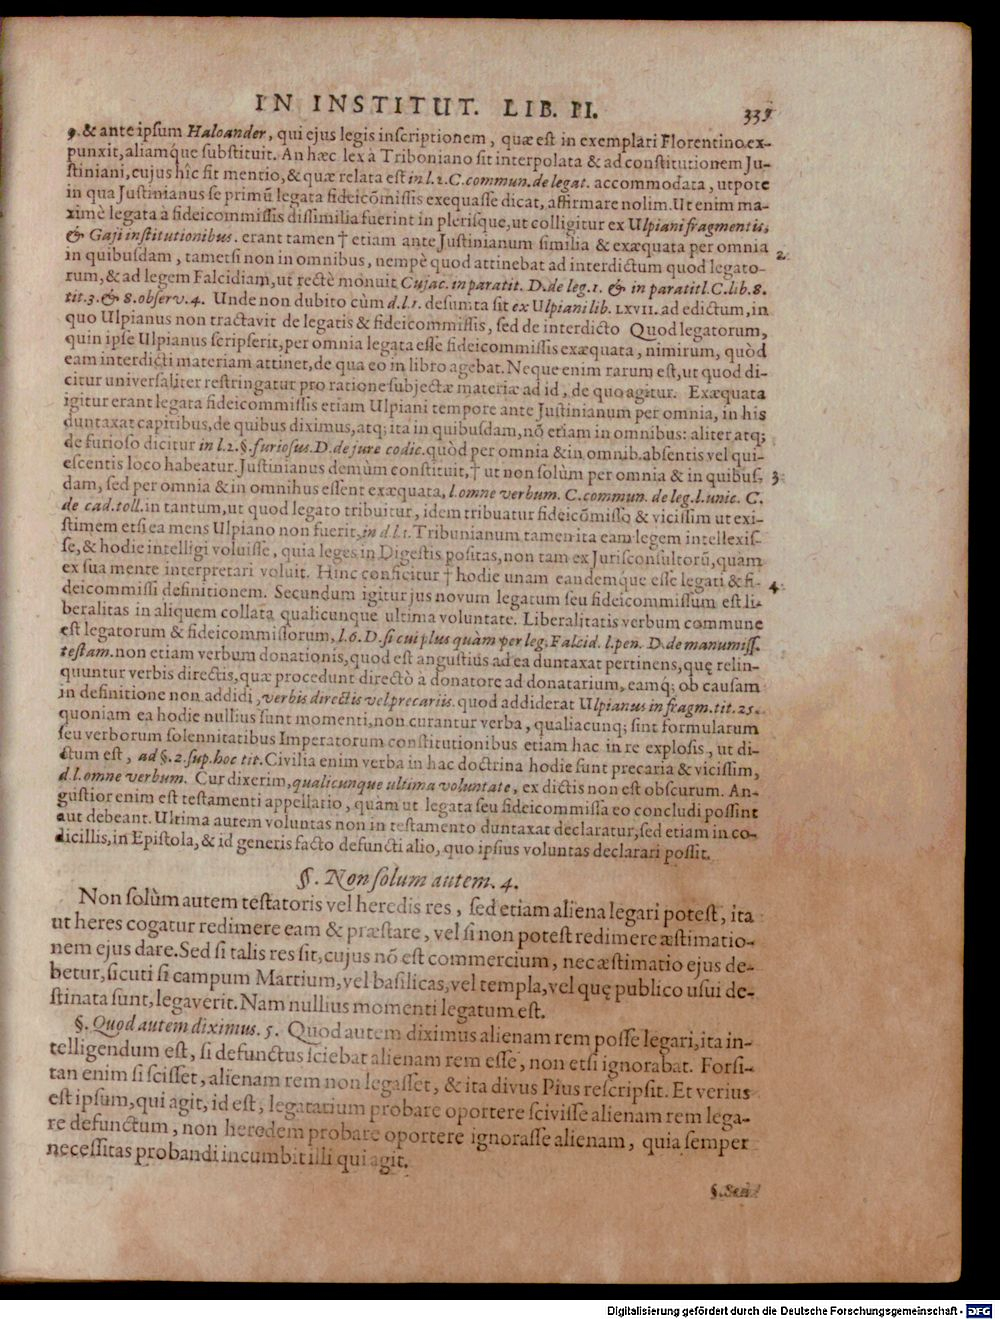 IN INSTITUT. LIB. II. 339
9. & ante ipsum Haloander, qui ejus legis inscriptionem, quæ est in exemplari Florentino ex-
punxit, aliamque substituit. An hæc lex à Triboniano sit interpolata & ad constitutionem Ju-
stiniani, cujus hîc fit mentio, & quæ relata est in l. 2. C. commun. de legat. accommodata, utpote
in qua Justinianus se primũ legata fideicõmissis exequasse dicat, affirmare nolim. Ut enim ma-
ximè legata à fideicommissis dissimilia fuerint in plerisque, ut colligitur ex Ulpiani fragmentis,
& Gaji institutionibus. erant tamen † etiam ante Justinianum similia & exæquata per omnia 2.
in quibusdam, tametsi non in omnibus, nempè quod attinebat ad interdictum quod legato-
rum, & ad legem Falcidiam, ut rectè monuit Cujac. in paratit. D. de leg. 1. & in paratitl. C. lib. 8.
tit. 3. & 8. observ. 4. Unde non dubito cùm d. l. 1. desumta sit ex Ulpiani lib. LXVII. ad edictum, in
quo Ulpianus non tractavit de legatis & fideicommissis, sed de interdicto Quod legatorum,
quin ipse Ulpianus scripserit, per omnia legata esse fideicommissis exæquata, nimirum, quòd
eam interdicti materiam attinet, de qua eo in libro agebat. Neque enim rarum est, ut quod di-
citur universaliter restringatur pro ratione subjectæ materiæ ad id, de quo agitur. Exæquata
igitur erant legata fideicommissis etiam Ulpiani tempore ante Justinianum per omnia, in his
duntaxat capitibus, de quibus diximus, atq; ita in quibusdam, nõ etiam in omnibus: aliter atq;
de furioso dicitur in l. 2. §. furiosus. D. de jure codic. quòd per omnia & in omnib. absentis vel qui-
escentis loco habeatur. Justinianus demùm constituit, † ut non solùm per omnia & in quibus- 3.
dam, sed per omnia & in omnibus essent exæquata, l. omne verbum. C. commun. de leg. l. unic. C.
de cad. toll. in tantum, ut quod legato tribuitur, idem tribuatur fideicõmisso & vicissim ut exi-
stimem etsi ea mens Ulpiano non fuerit, in d. l. 1. Tribunianum tamen ita eam legem intellexis-
se, & hodie intelligi voluisse, quia leges in Digestis positas, non tam ex Jurisconsultorũ, quàm
ex sua mente interpretari voluit. Hinc conficitur † hodie unam eandemque esse legati & fi- 4.
deicommissi definitionem. Secundum igitur jus novum legatum seu fideicommissum est li-
beralitas in aliquem collata qualicunque ultima voluntate. Liberalitatis verbum commune
est legatorum & fideicommissorum, l. 6. D. si cui plus quàm per leg. Falcid. l. pen. D. de manumiss.
testam. non etiam verbum donationis, quod est angustiùs ad ea duntaxat pertinens, quę relin-
quuntur verbis directis, quæ procedunt directò à donatore ad donatarium, eamq; ob causam
in definitione non addidi, verbis directis vel precariis. quod addiderat Ulpianus in fragm. tit. 25.
quoniam ea hodie nullius sunt momenti, non curantur verba, qualiacunq; sint formularum
seu verborum solennitatibus Imperatorum constitutionibus etiam hac in re explosis, ut di-
ctum est, ad §. 2. sup. hoc tit. Civilia enim verba in hac doctrina hodie sunt precaria & vicissim,
d. l. omne verbum. Cur dixerim, qualicunque ultima voluntate, ex dictis non est obscurum. An-
gustior enim est testamenti appellatio, quàm ut legata seu fideicommissa eo concludi possint
aut debeant. Ultima autem voluntas non in testamento duntaxat declaratur, sed etiam in co-
dicillis, in Epistola, & id generis facto defuncti alio, quo ipsius voluntas declarari possit.
§. Non solum autem. 4.
Non solùm autem testatoris vel heredis res, sed etiam aliena legari potest, ita
ut heres cogatur redimere eam & præstare, vel si non potest redimere æstimatio-
nem ejus dare. Sed si talis res sit, cujus nõ est commercium, nec æstimatio ejus de-
betur, sicuti si campum Martium, vel basilicas, vel templa, vel quę publico usui de-
stinata sunt, legaverit. Nam nullius momenti legatum est.
§. Quod autem diximus. 5. Quod autem diximus alienam rem posse legari, ita in-
telligendum est, si defunctus sciebat alienam rem esse, non etsi ignorabat. Forsi-
tan enim si scisset, alienam rem non legasset, & ita divus Pius rescripsit. Et verius
est ipsum, qui agit, id est, legatarium probare oportere scivisse alienam rem lega-
re defunctum, non heredem probare oportere ignorasse alienam, quia semper
necessitas probandi incumbit illi qui agit.
§. Sed
Digitalisierung gefördert durch die Deutsche Forschungsgemeinschaft - DFG